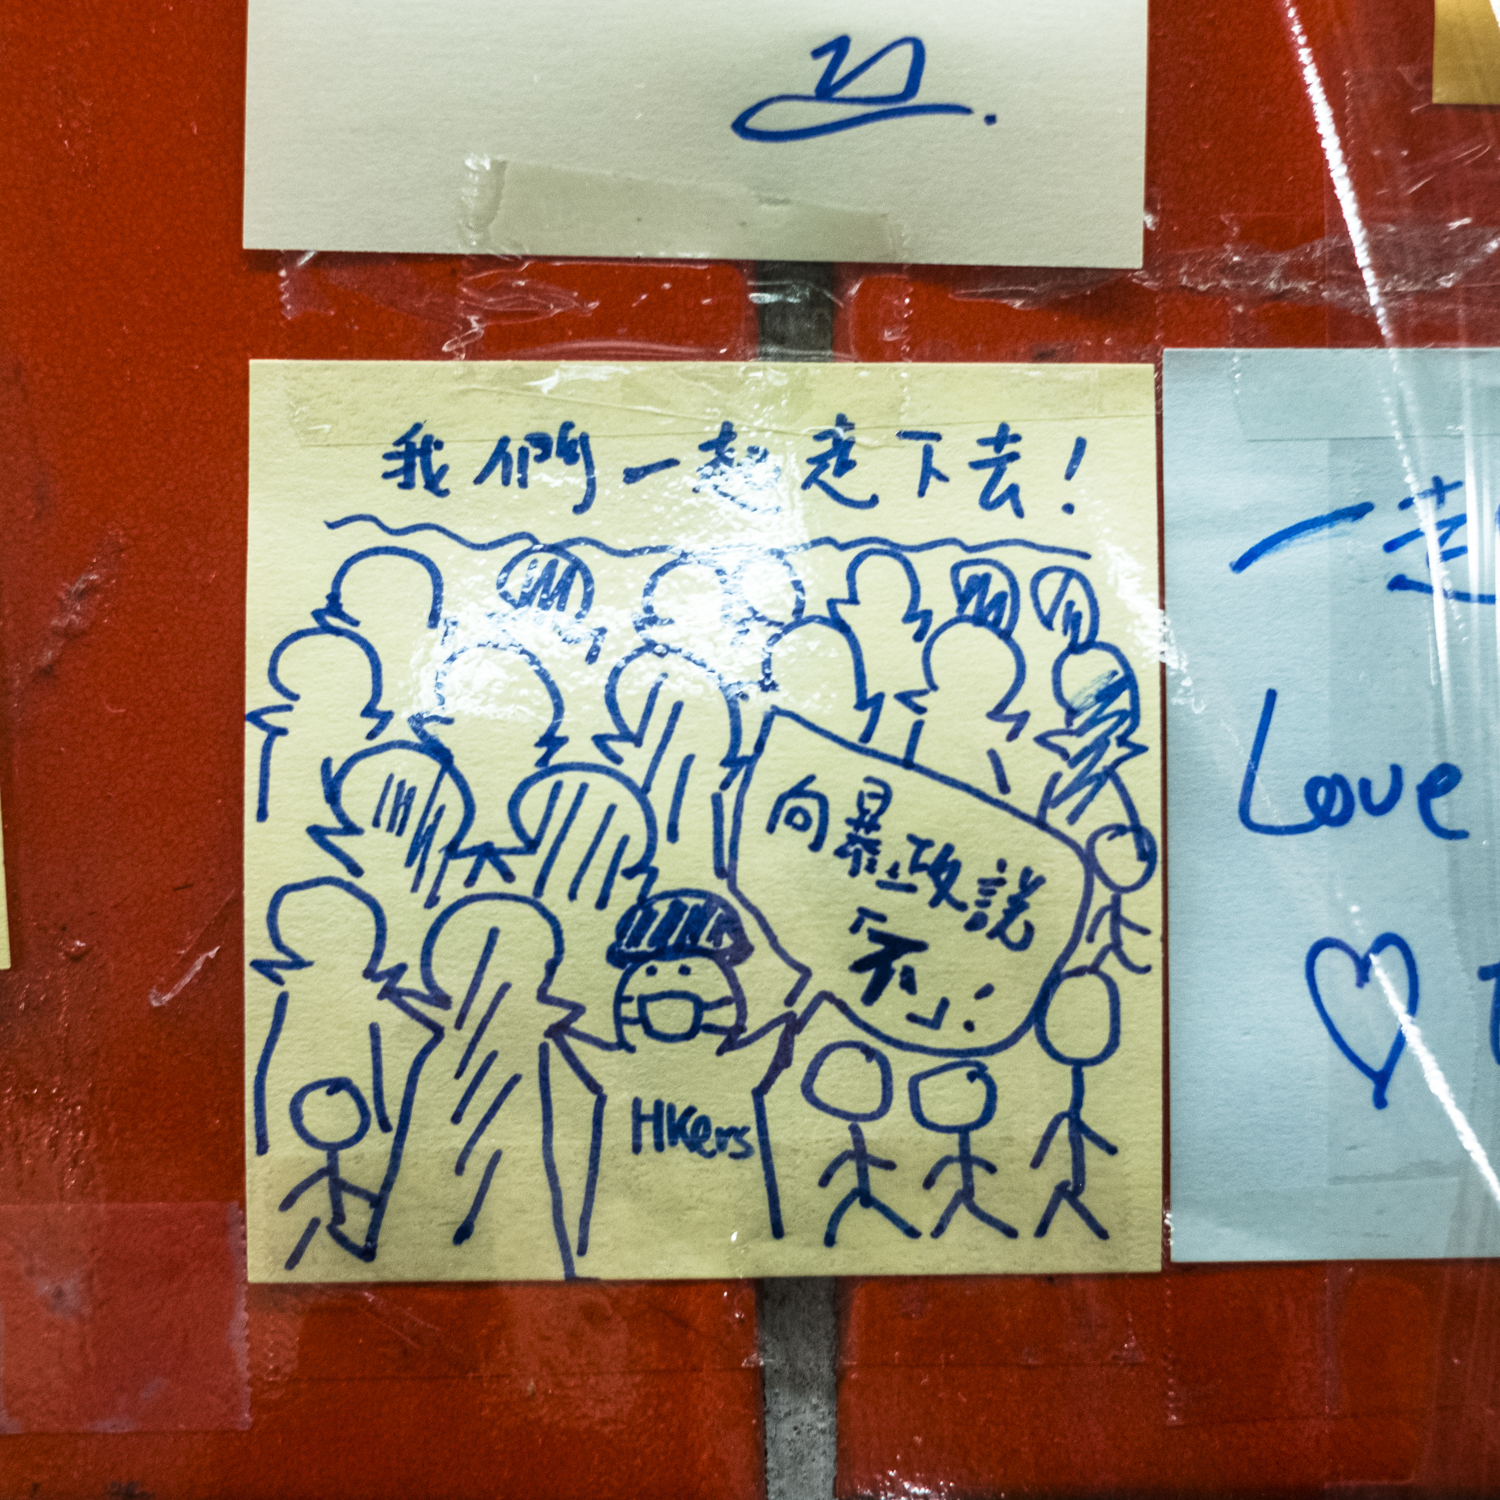 我們一起走下去！
向暴政説
「不」！
HKers
一起
Love